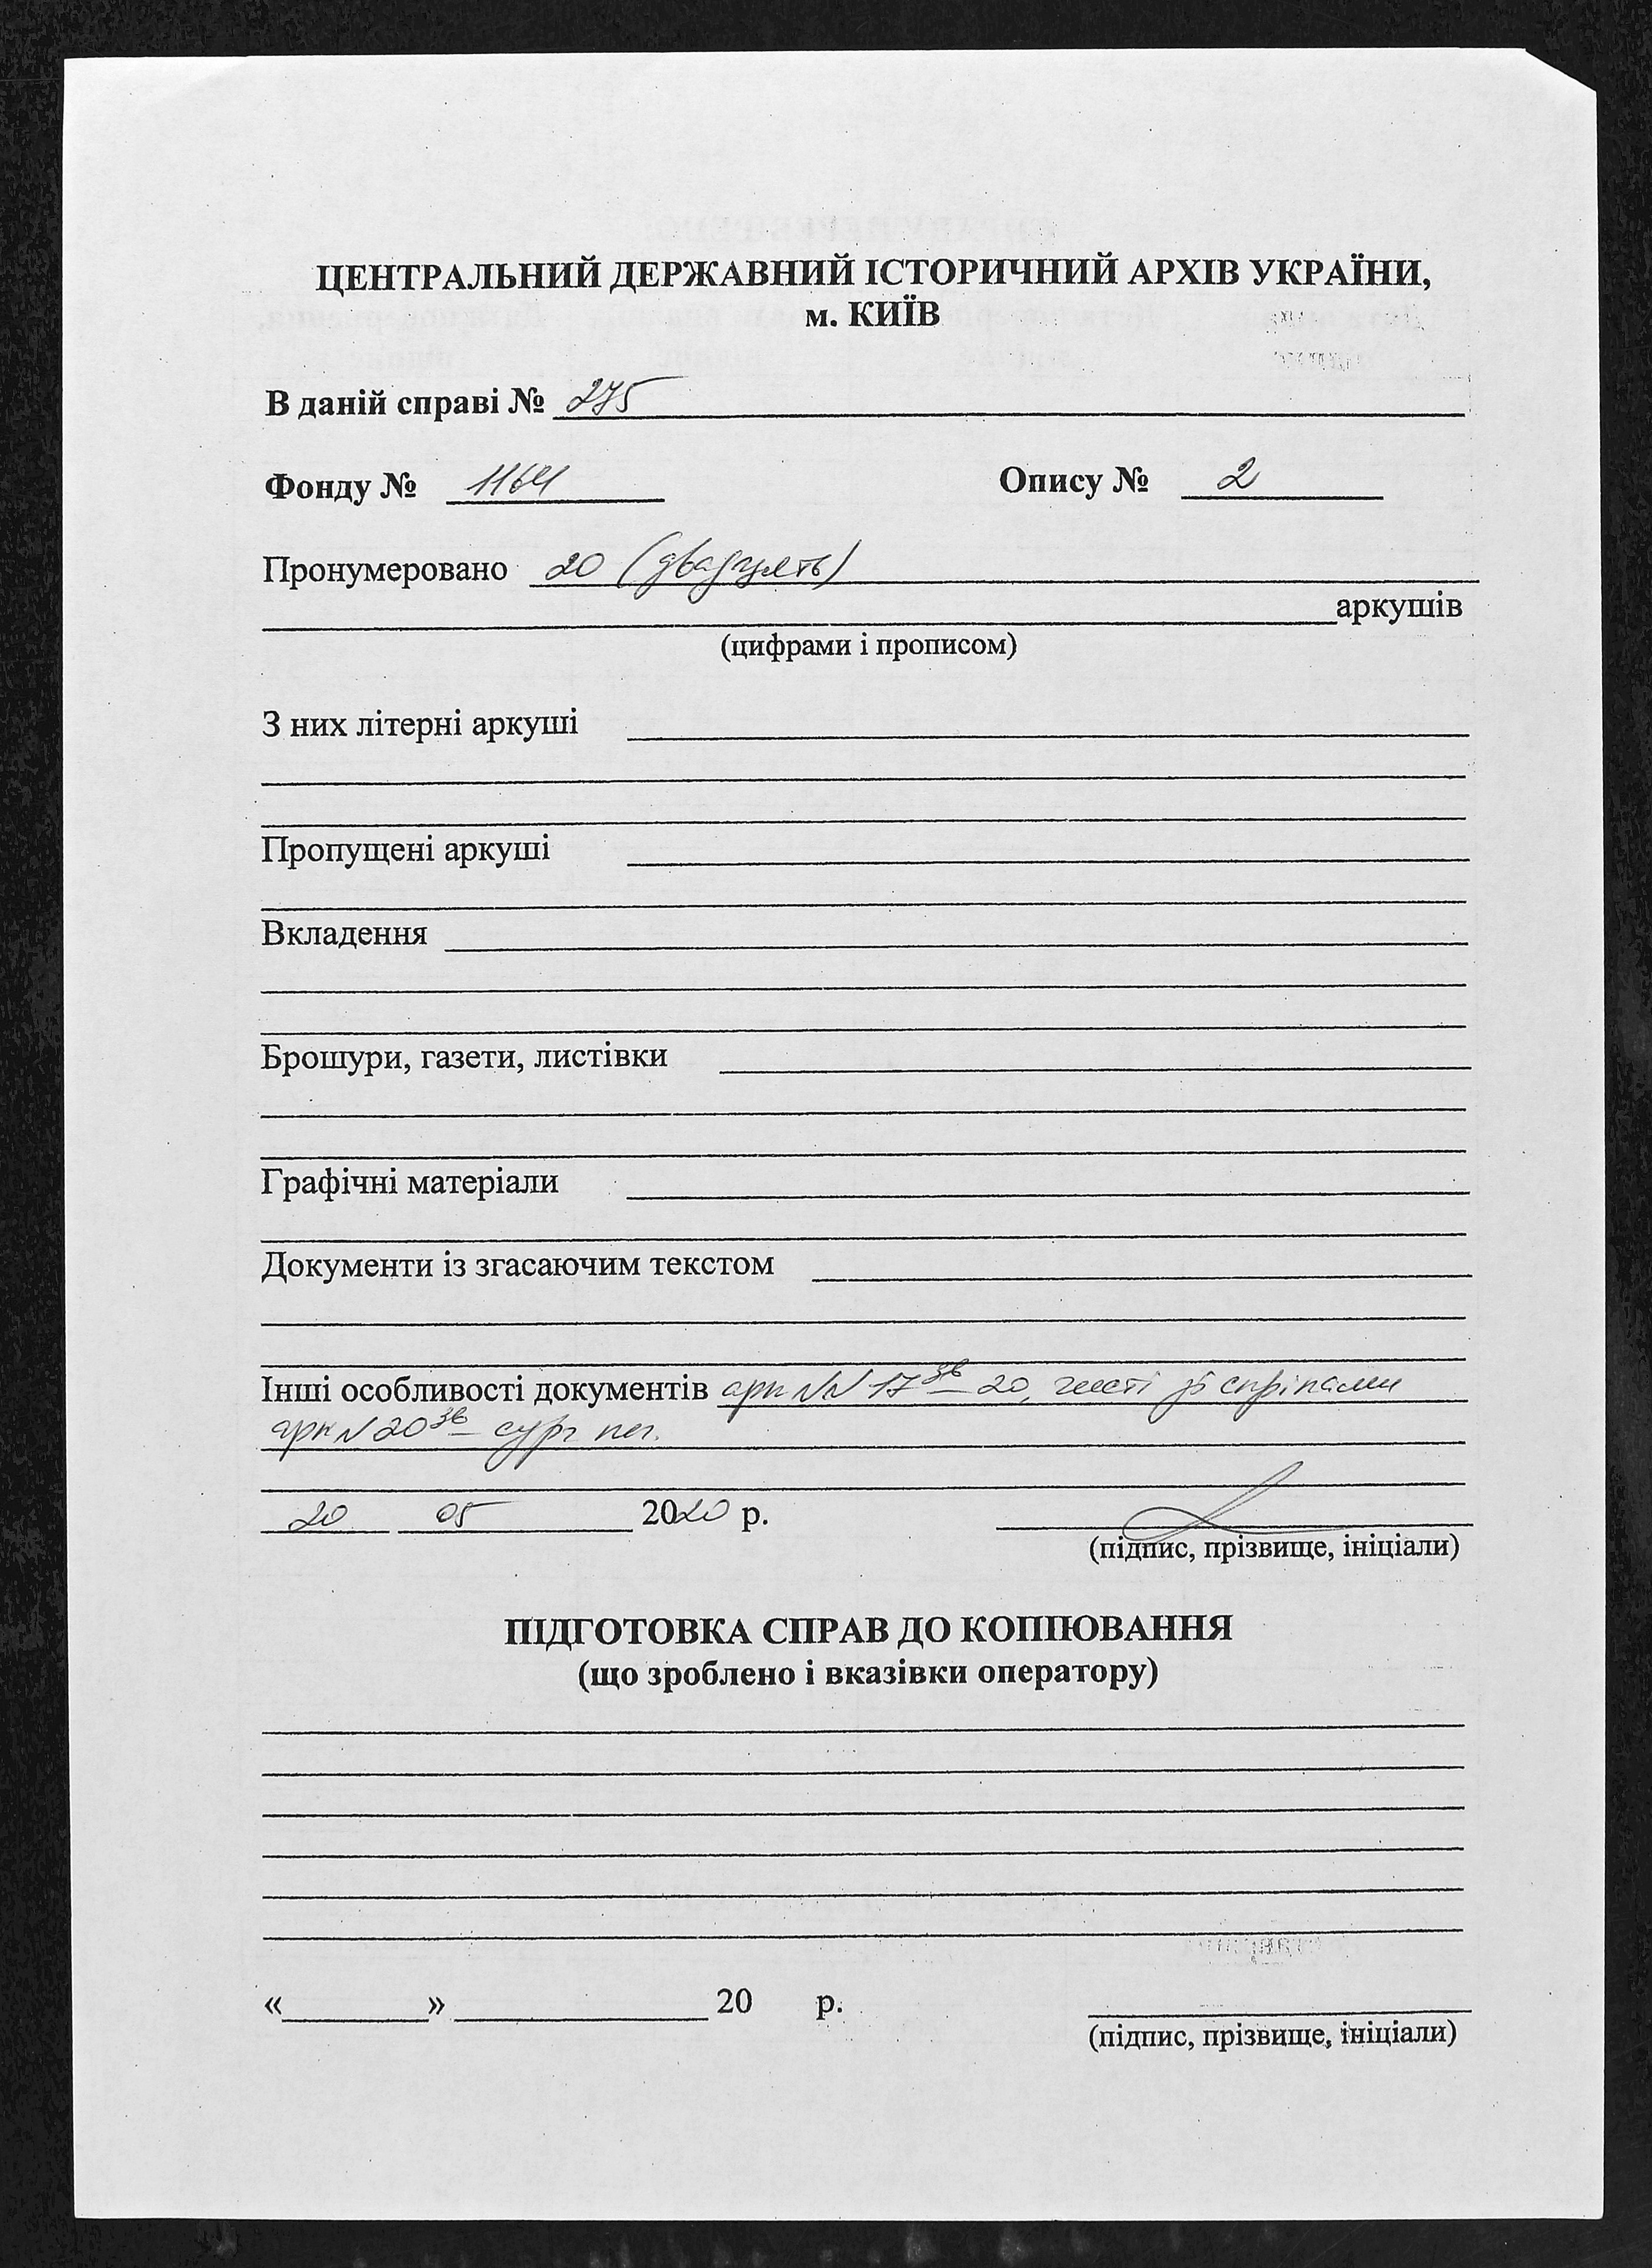 ЦЕНТРАЛЬНИЙ ДЕРЖАВНИЙ ІСТОРИЧНИЙ АРХІВ УКРАЇНИ,
м. КИЇВ
В даній справі № 275
Фонду № 1164 Опису № 2
Пронумеровано 20 (двадцять)
аркушів
(цифрами і прописом)
З них літерні аркуші
Пропущені аркуші
Вкладення
Брошури, газети, листівки
Графічні матеріали
Документи із згасаючим текстом
Інші особливості документів арк NN 17зв – 20, чисті зі скріпами
арк N 20зв – сург печ.
20 05 2020 р.
(підпис, прізвище, ініціали)
ПІДГОТОВКА СПРАВ ДО КОПІЮВАННЯ
(що зроблено і вказівки оператору)
«   »   20   р.
(підпис, прізвище, ініціали)